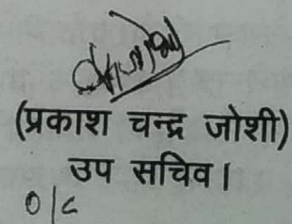 (प्रकाश चन्द्र जोशी)
उप सचिव।
O/C